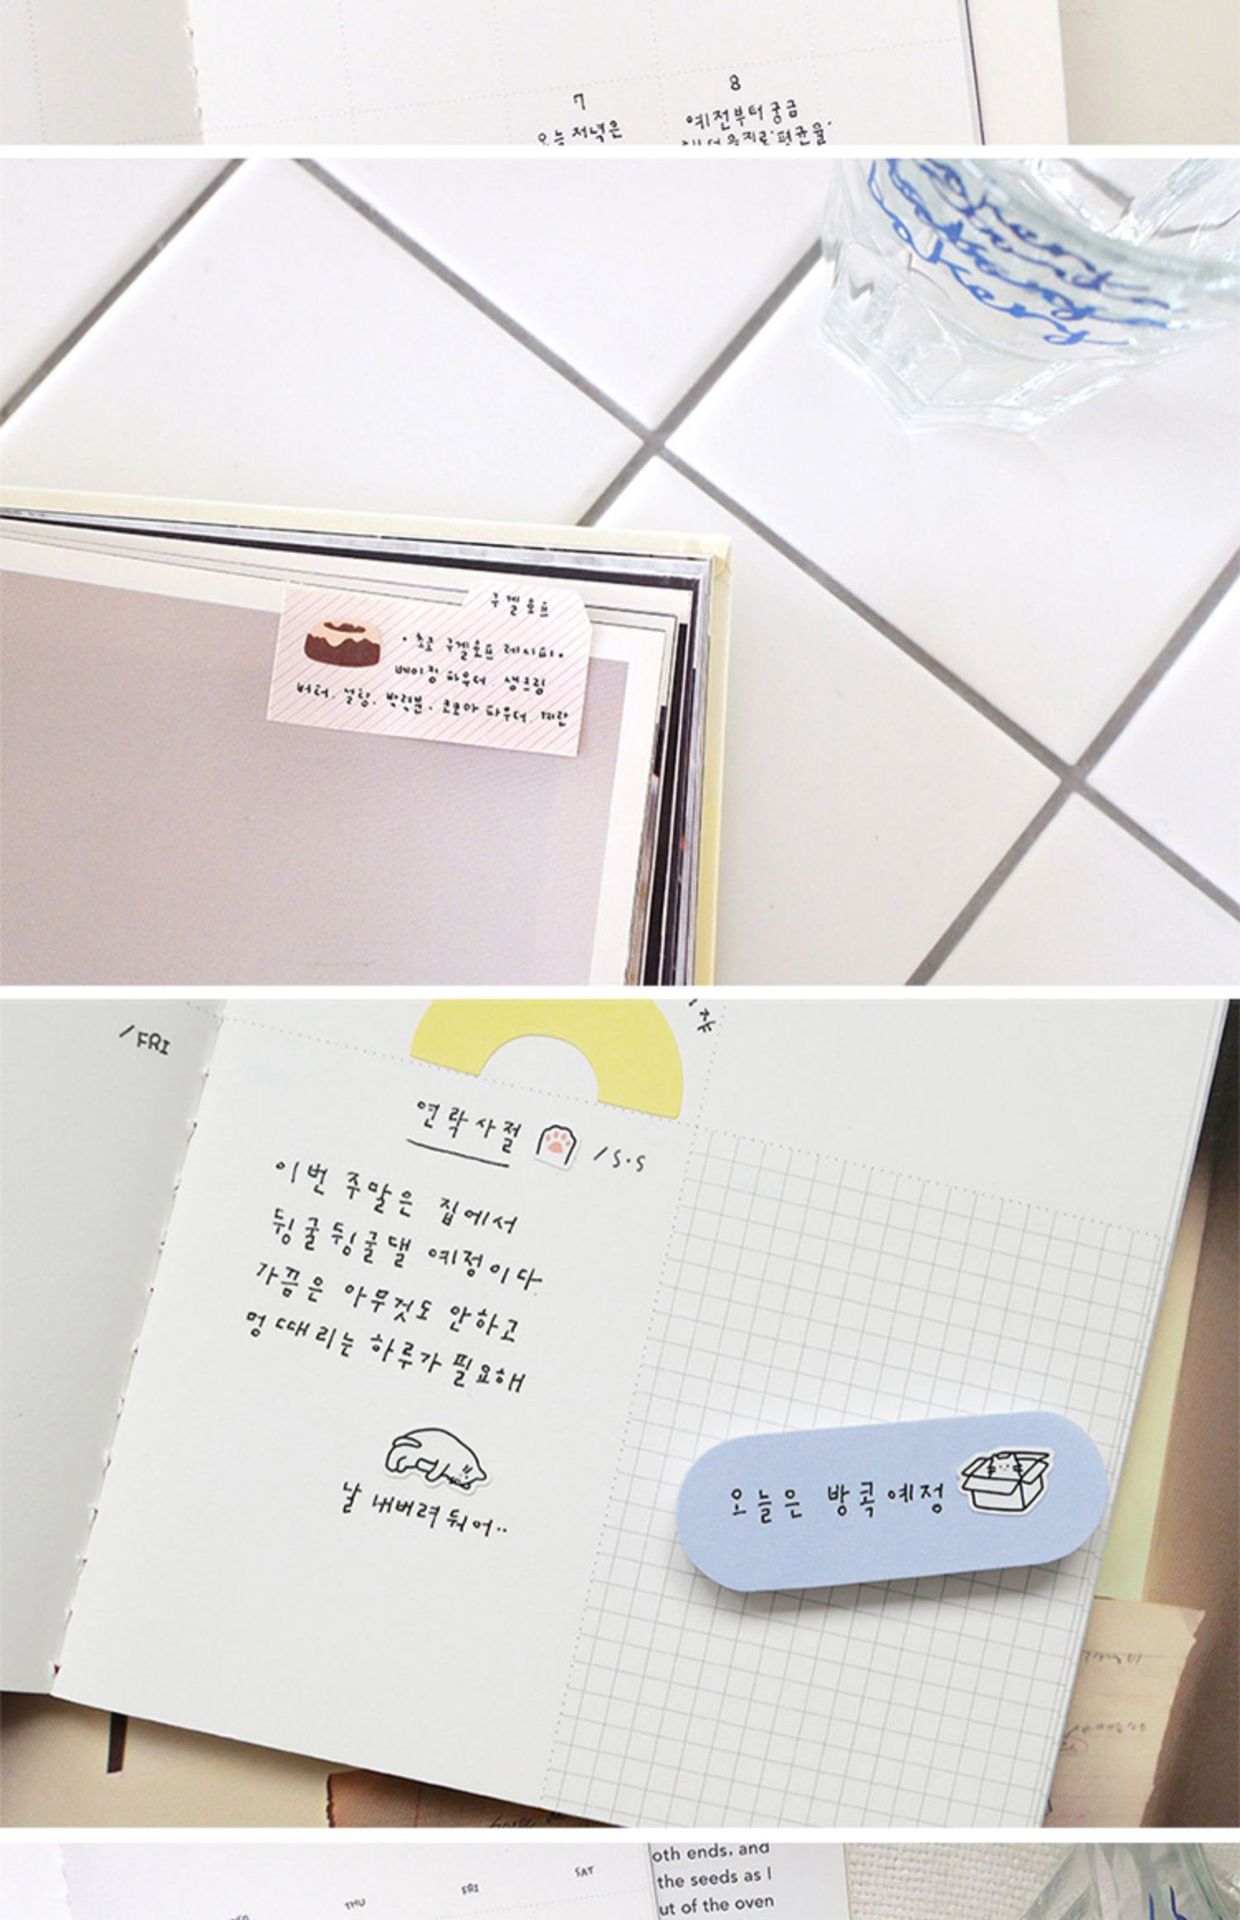 7
오늘 저녁은
8
예전부터 궁금
했던 을지로 '평균율'
구겔호프
• 초코 구겔호프 레시피 •
베이킹 파우더, 생크림
버터, 설탕, 박력분, 코코아 파우더, 계란
/FRI
연락사절 /S.S
이번 주말은 집에서
뒹굴뒹굴댈 예정이다.
가끔은 아무것도 안하고
멍 때리는 하루가 필요해
날 내버려 둬어..
오늘은 방콕예정
THU
FRI
SAT
oth ends, and
the seeds as I
ut of the oven